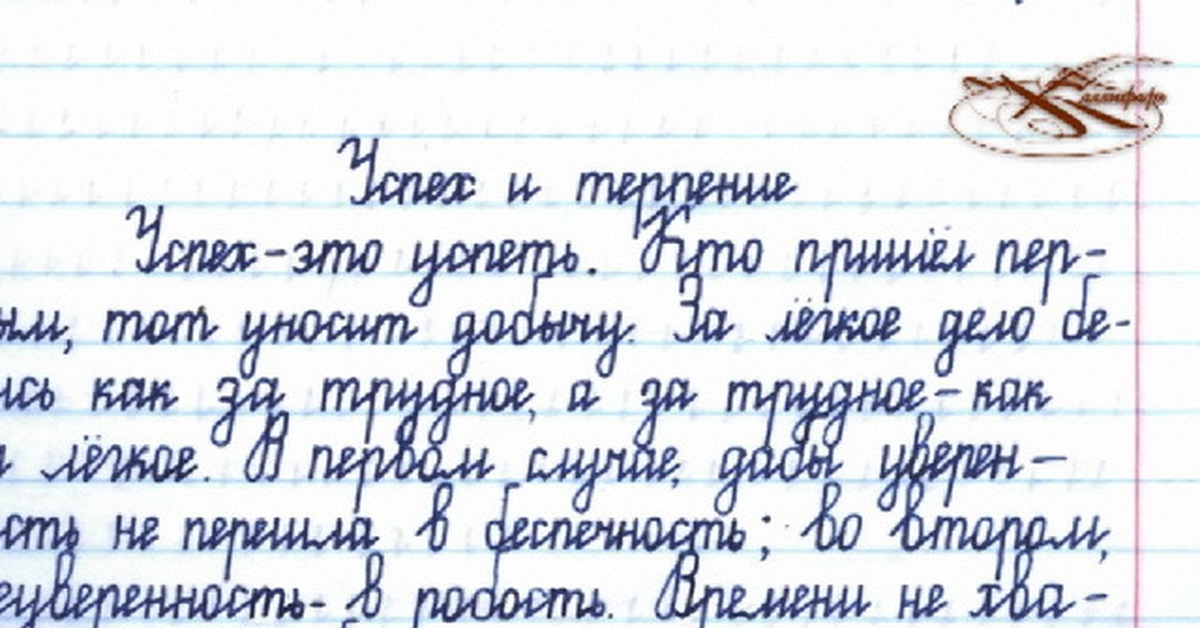 Успех и терпение
Успех - это успеть. Кто пришёл пер-
ым, тот уносит добычу. За лёгкое дело бе-
ись как за трудное, а за трудное - как
а лёгкое. В первом случае, дабы уверен-
сть не перешла в беспечность; во втором,
еуверенность - в робость. Времени не хва-